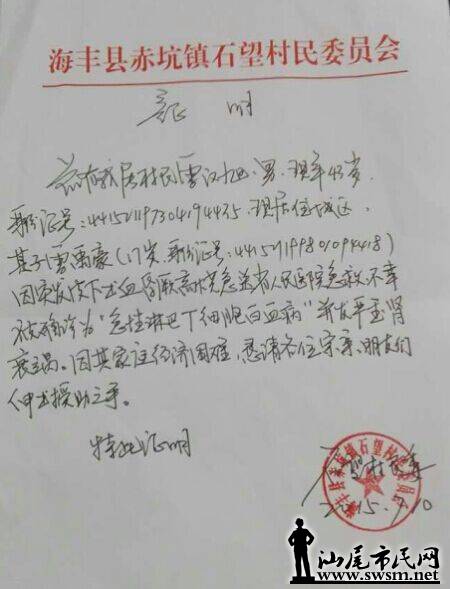 海丰县赤坑镇石望村民委员会
证 明
兹有我居村民曹汉,男,现年43岁,
身份证号:441521197304194435.现居住城区.
其子曹禹豪(17岁,身份证号:441521199801094418)
因突发皮下出血昏厥高烧急送省人民医院急救.不幸
被确诊为"急性淋巴T细胞白血病"并发严重肾
衰竭。因其家庭经济困难,恳请各位宗亲.朋友们
伸出援助之手。
特此证明
海丰县赤坑镇石望村民委员会
村民委
2015.7.10
汕尾市民网
www.swsm.net